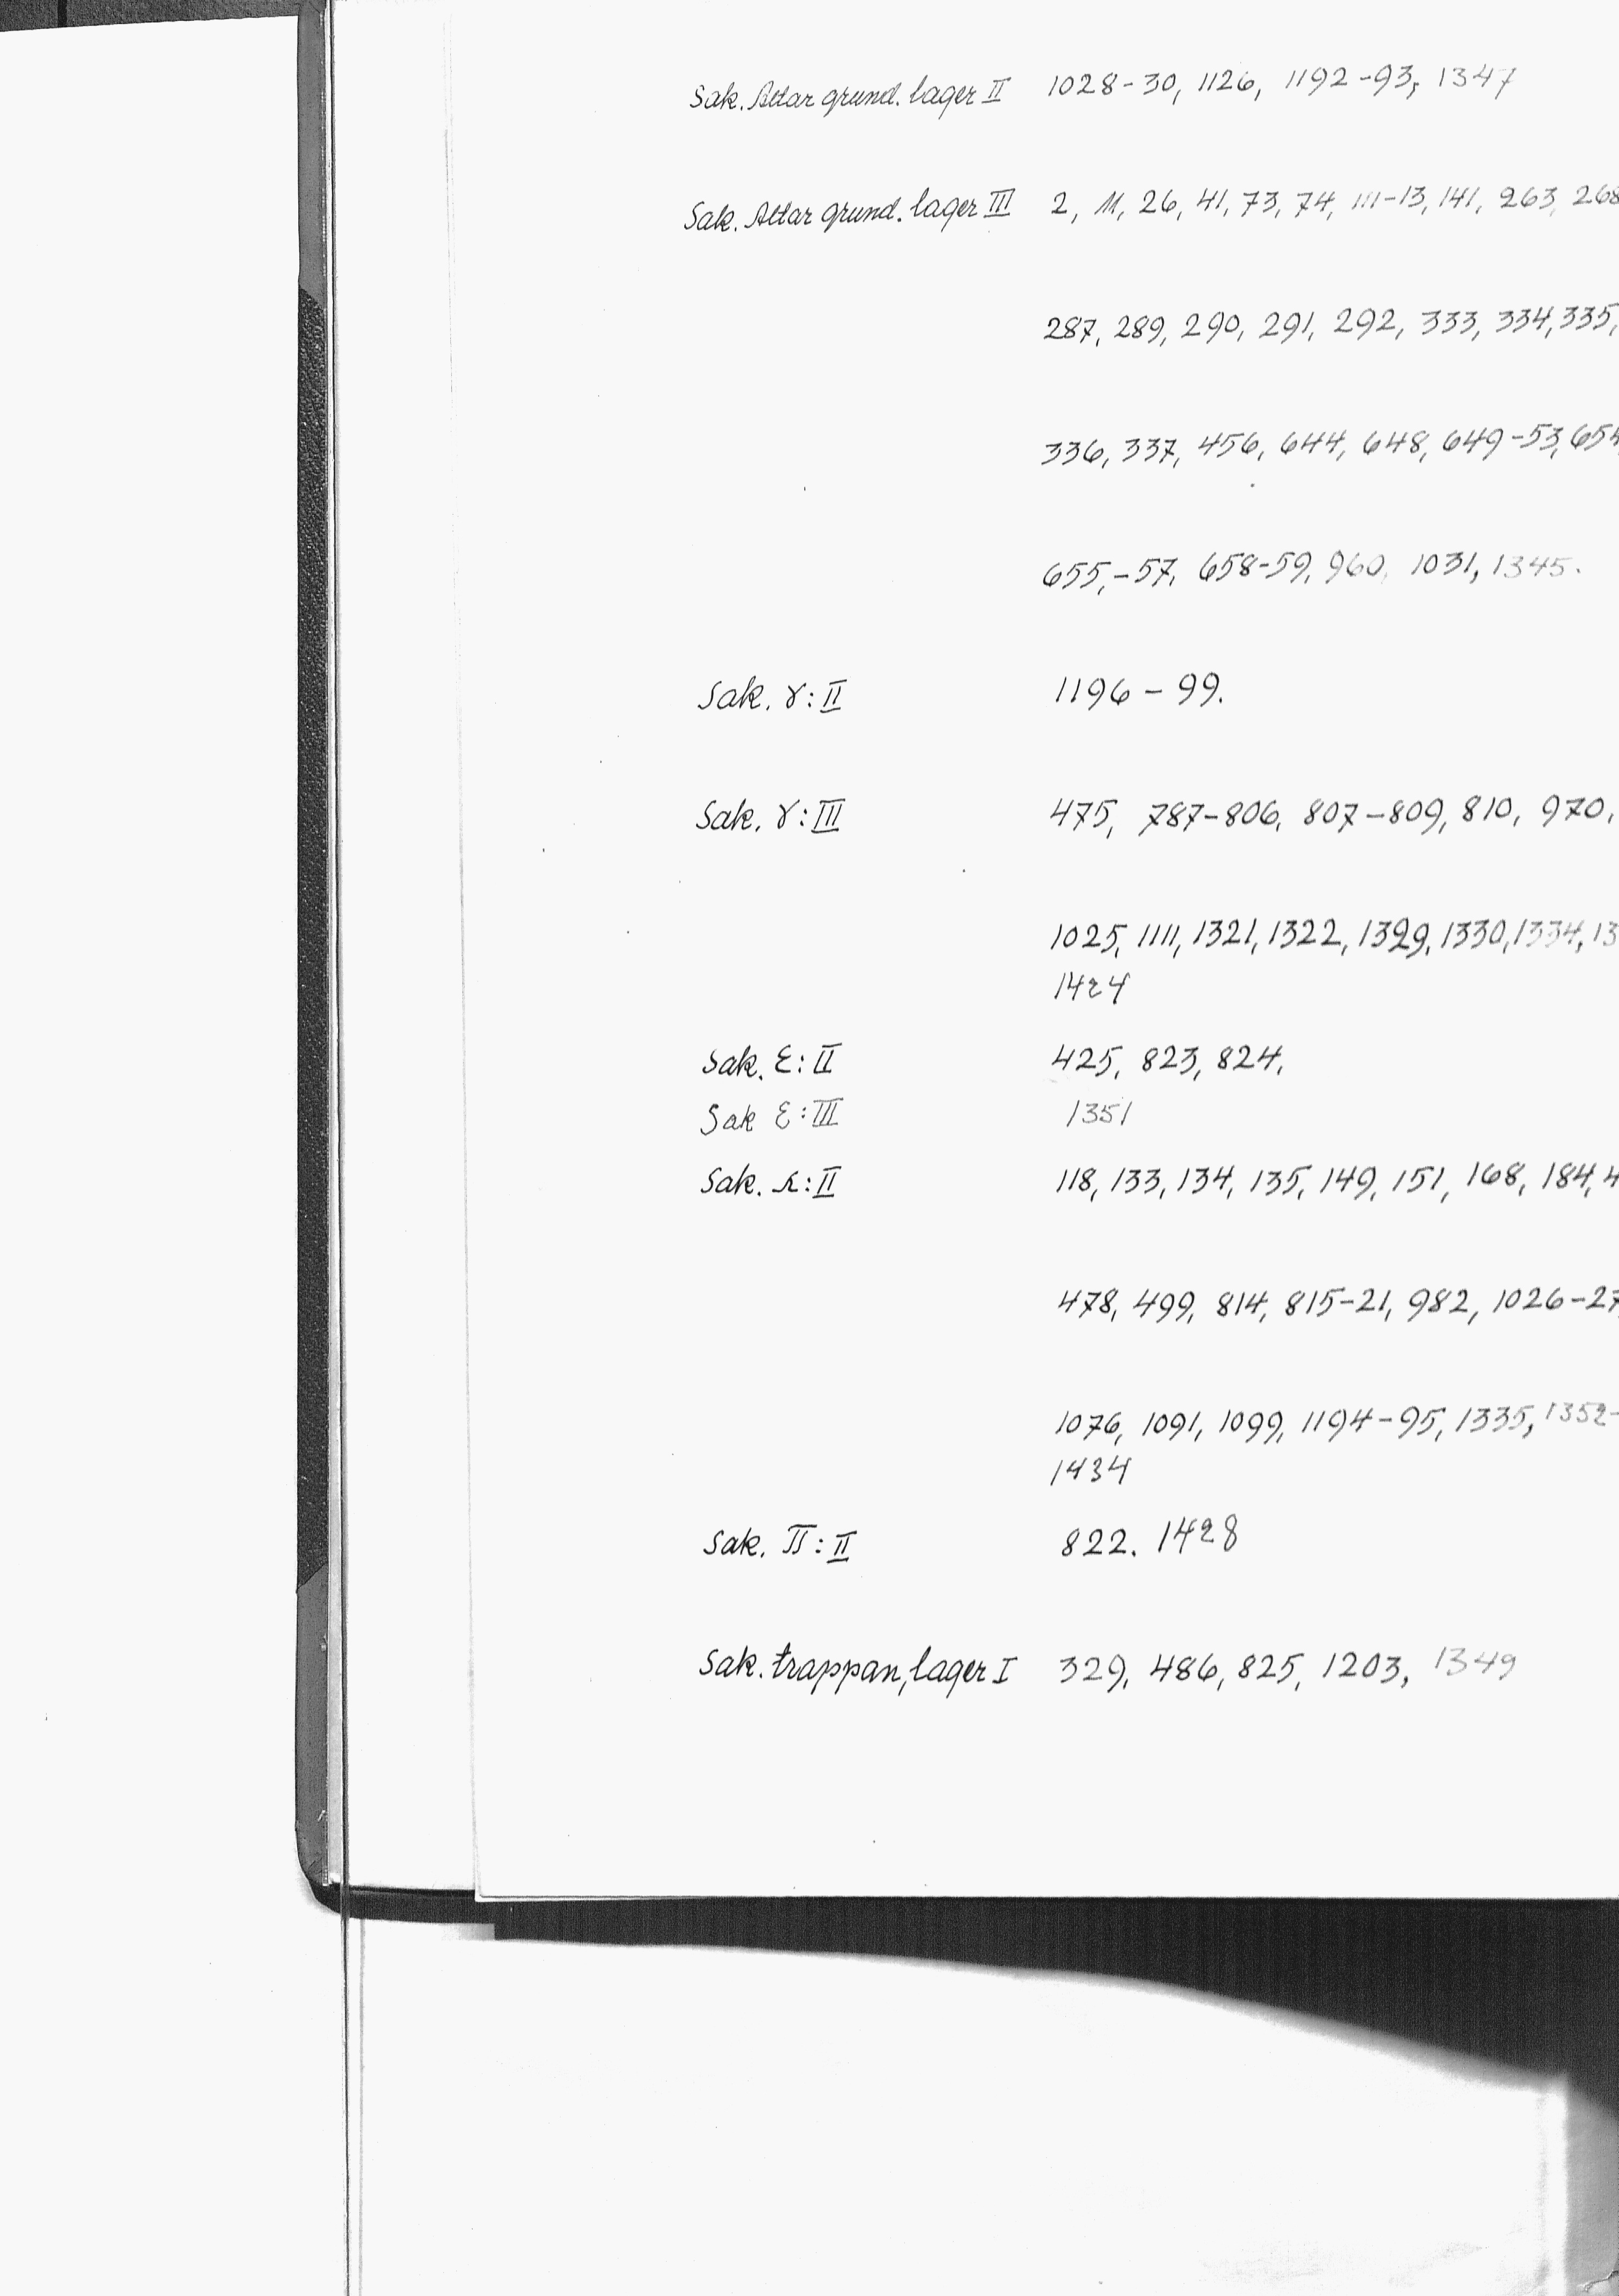 Sak. Altar grund. lager II 1028-30, 1126, 1192-93, 1347
Sak. Altar grund. lager III 2, 11, 26, 41, 73, 74, 111-13, 141, 263, 268
287, 289, 290, 291, 292, 333, 334, 335,
336, 337, 456, 644, 648, 649-53, 654,
655,-57, 658-59, 960, 1031, 1345.
Sak. γ:II 1196-99.
Sak. γ:III 475, 787-806, 807-809, 810, 970,
1025, 1111, 1321, 1322, 1329, 1330, 1334, 13
1424
Sak. ε:II 425, 823, 824,
Sak ε:III 1351
Sak. :II 118, 133, 134, 135, 149, 151, 168, 184, 4
478, 499, 814, 815-21, 982, 1026-27
1076, 1091, 1099, 1194-95, 1335, 1352-
1434
Sak. π:II 822. 1428
Sak. trappan, lager I 329, 486, 825, 1203, 1349